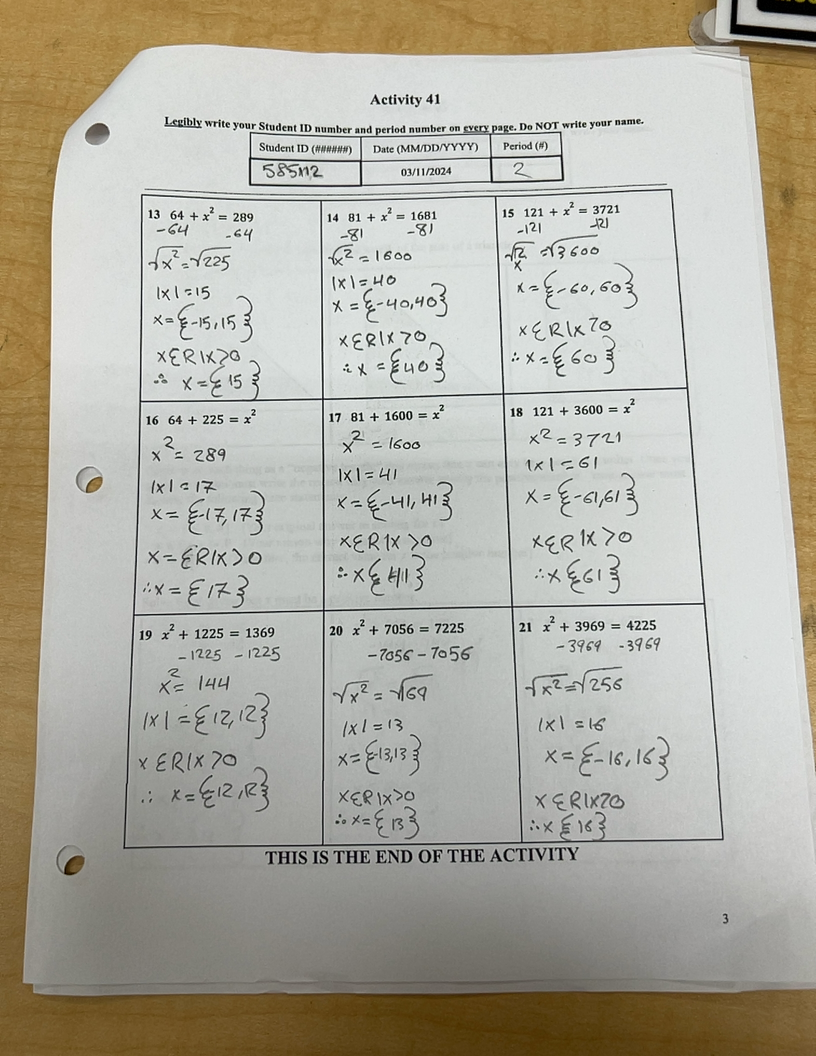 Activity 41
Legibly write your Student ID number and period number on every page. Do NOT write your name.
Student ID (######) Date (MM/DD/YYYY) Period (#)
03/11/2024 2
13 64 + x² = 289
-64 -64
√x² = √225
|x| = 15
x = {-15, 15}
x ∈ R|x > 0
∴ x = {15}
14 81 + x² = 1681
-81 -81
√x² = 1600
|x| = 40
x = {-40, 40}
x ∈ R|x > 0
∴ x = {40}
15 121 + x² = 3721
-121 -121
= √3600
x = {-60, 60}
x ∈ R|x > 0
∴ x = {60}
16 64 + 225 = x²
x² = 289
|x| = 17
x = {-17, 17}
x = ∈ R|x > 0
∴ x = {17}
17 81 + 1600 = x²
x² = 1600
|x| = 41
x = {-41, 41}
x ∈ R|x > 0
∴ x {41}
18 121 + 3600 = x²
x² = 3721
|x| = 61
x = {-61, 61}
x ∈ R|x > 0
∴ x {61}
19 x² + 1225 = 1369
-1225 -1225
x² = 144
|x| = {12, 12}
x ∈ R|x > 0
∴ x = {12, 12}
20 x² + 7056 = 7225
-7056 -7056
√x² = √169
|x| = 13
x = {-13, 13}
x ∈ R|x > 0
∴ x = {13}
21 x² + 3969 = 4225
-3969 -3969
√x² = √256
|x| = 16
x = {-16, 16}
x ∈ R|x > 0
∴ x {16}
THIS IS THE END OF THE ACTIVITY
3